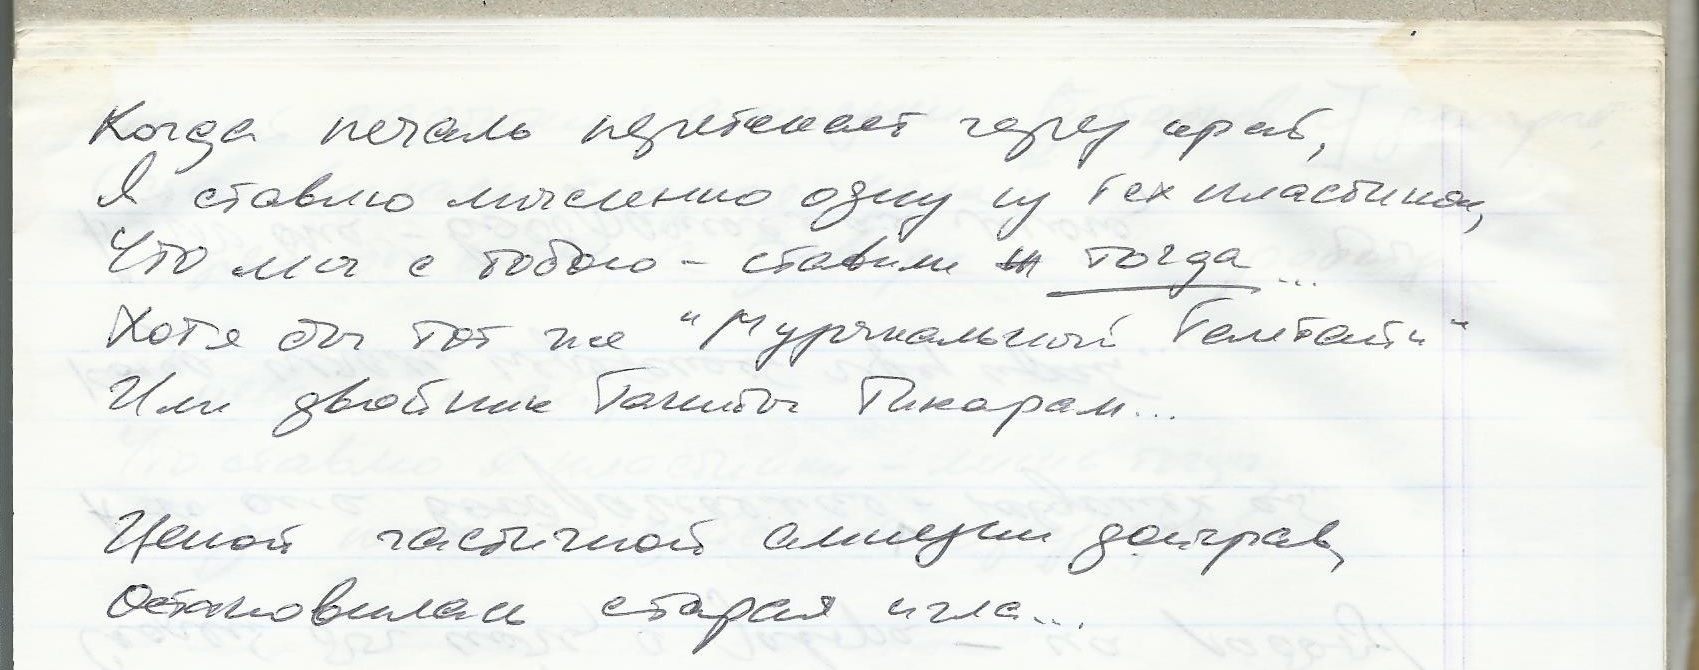 Когда печаль перетекает через край,
Я ставлю мысленно одну из тех пластинок,
Что мы с тобою – ставили тогда...
Хотя бы тот же "Музыкальный
Или двойник Таниты Тикарам...
Ценой частичной амнезии доиграв,
Остановилась старая игла...